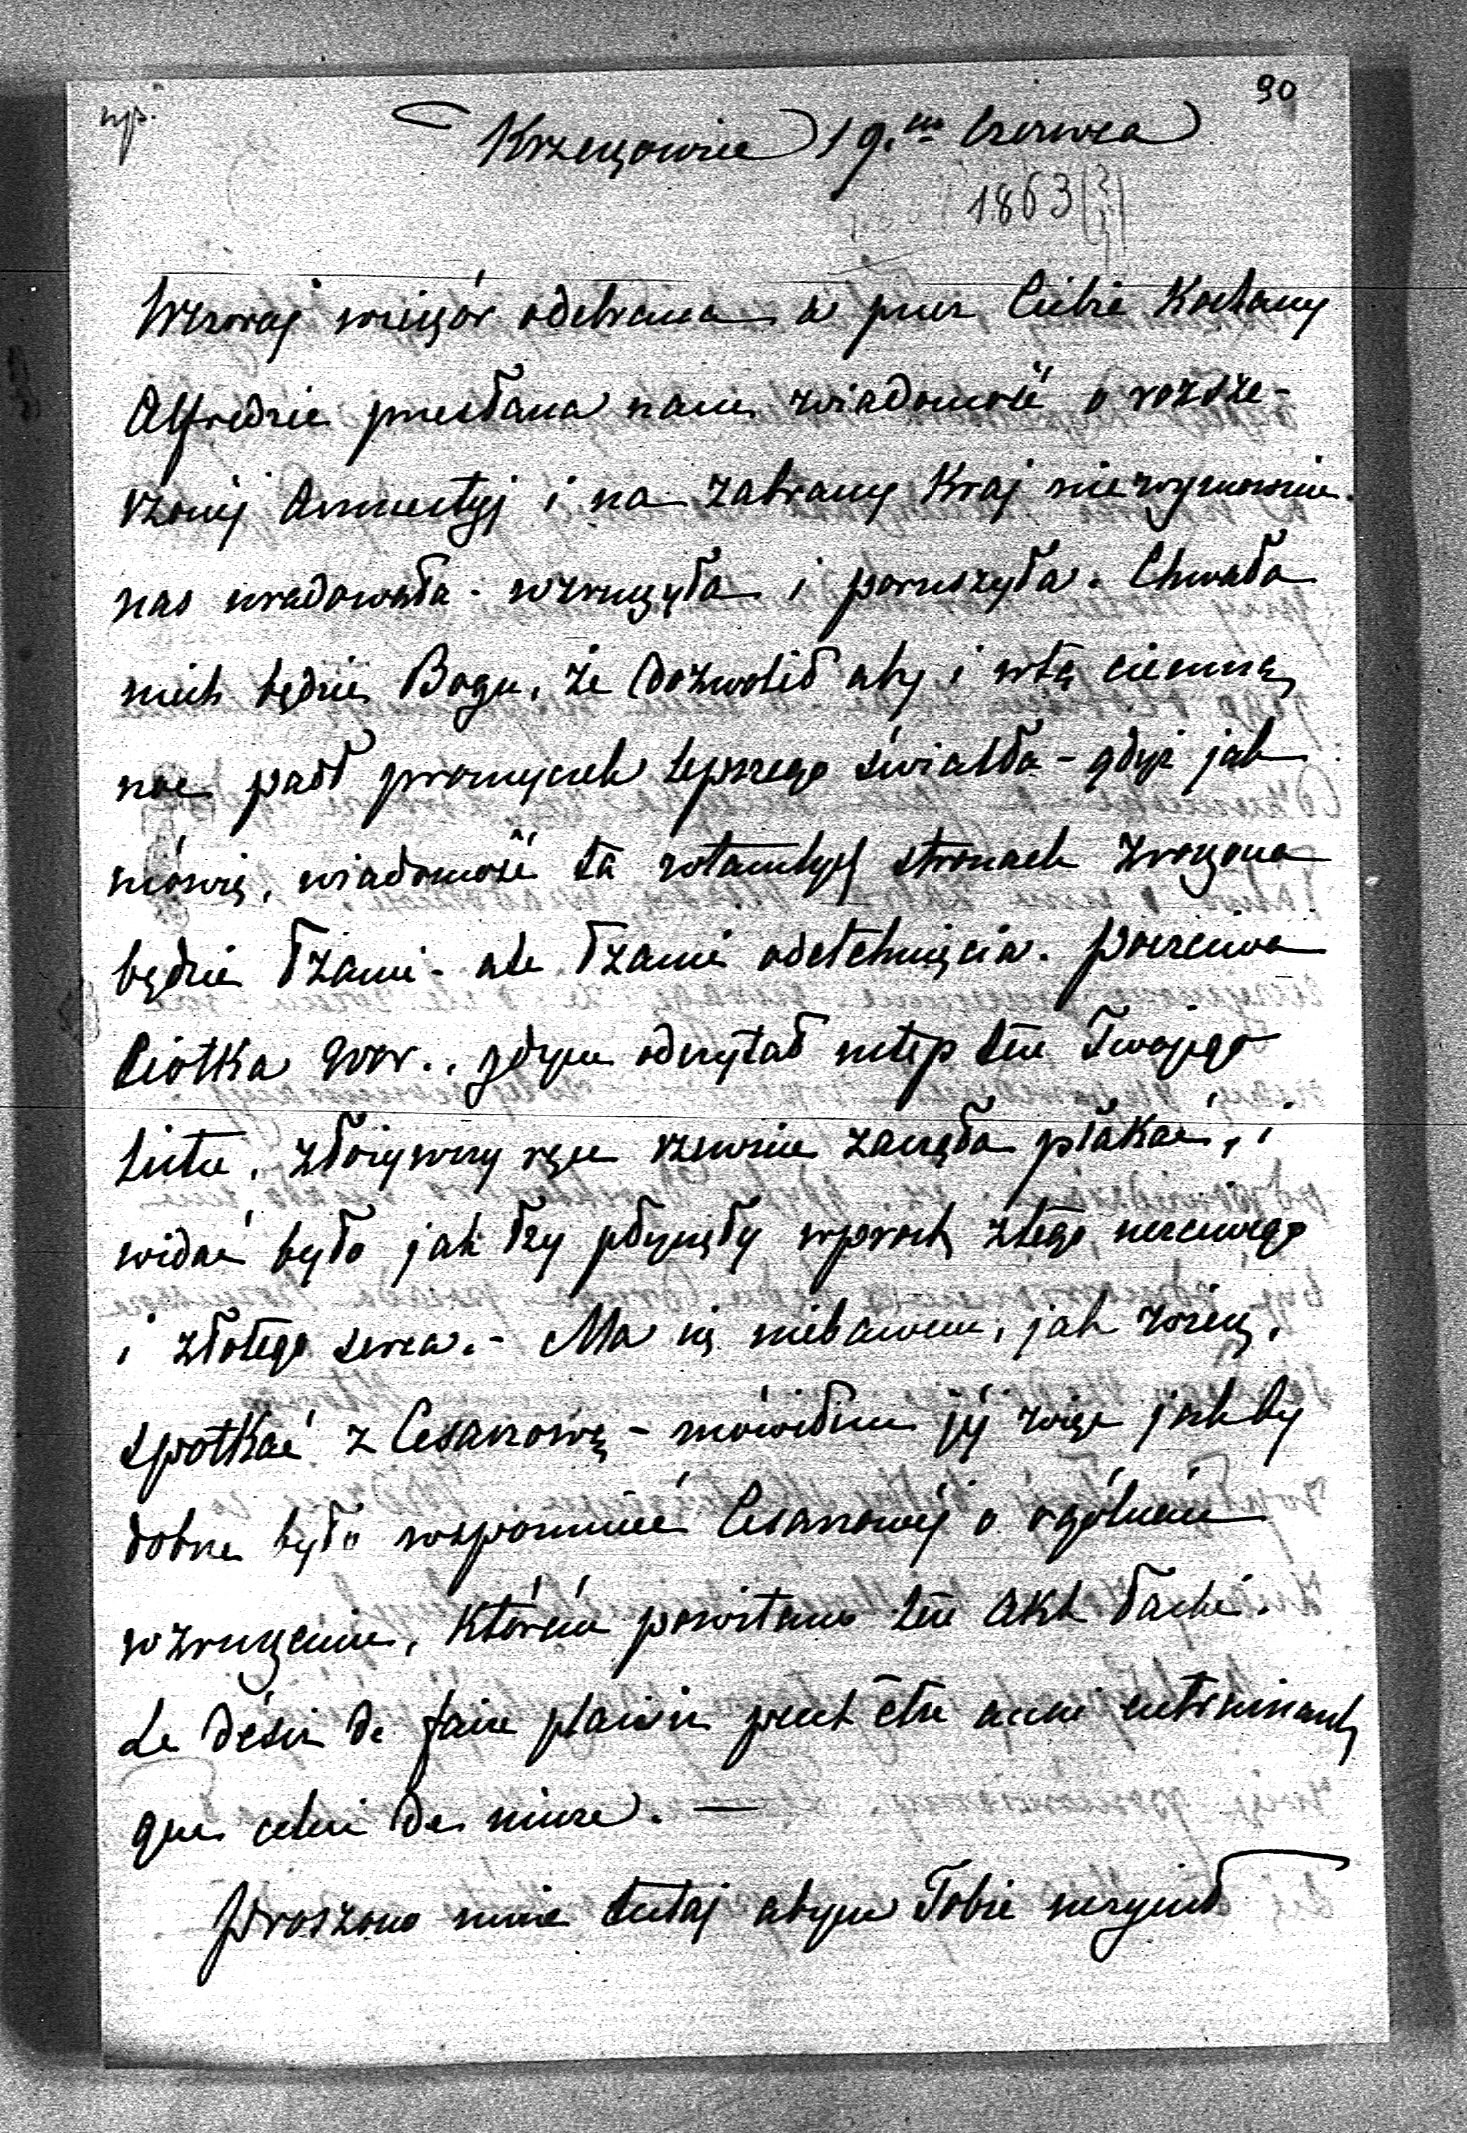 90
Krzeszowice 19.m Czerwca
1863 (?)
Wczoraj wieczór odebrana a przez Ciebie Kochany
Alfredzie przesłana nam wiadomość o rozsze-
rzonej Amnestyj i na zabrany Kraj niewymownie
nas uradowała - wzruszyła i poruszyła. Chwała
niech będzie Bogu, że dozwolił aby i w tę ciemną
noc padł promyczek lepszego światła - gdyż jak
mówię, wiadomość ta w tamtych stronach zroszona
będzie łzami - ale łzami odetchnięcia. Poczciwa
Ciotka gdym odczytał ustęp ten Twojego
listu, złożywszy ręce rzewnie zaczęła płakać, i
widać było jak łzy płynęły wprost z tego poczciwego
i złotego serca. - Ma się niebawem, jak wiesz,
spotkać z Cesarzową - mówiłem jéj więc jakby
dobrze było wspomnieć Cesarzowéj o ogólném
wzruszeniu, którém powitano ten akt łaski.
Le désir de faire plaisir peut être aussi entrainant
que celui de nuire. —
Proszono mnie tutaj abym Tobie uczynił